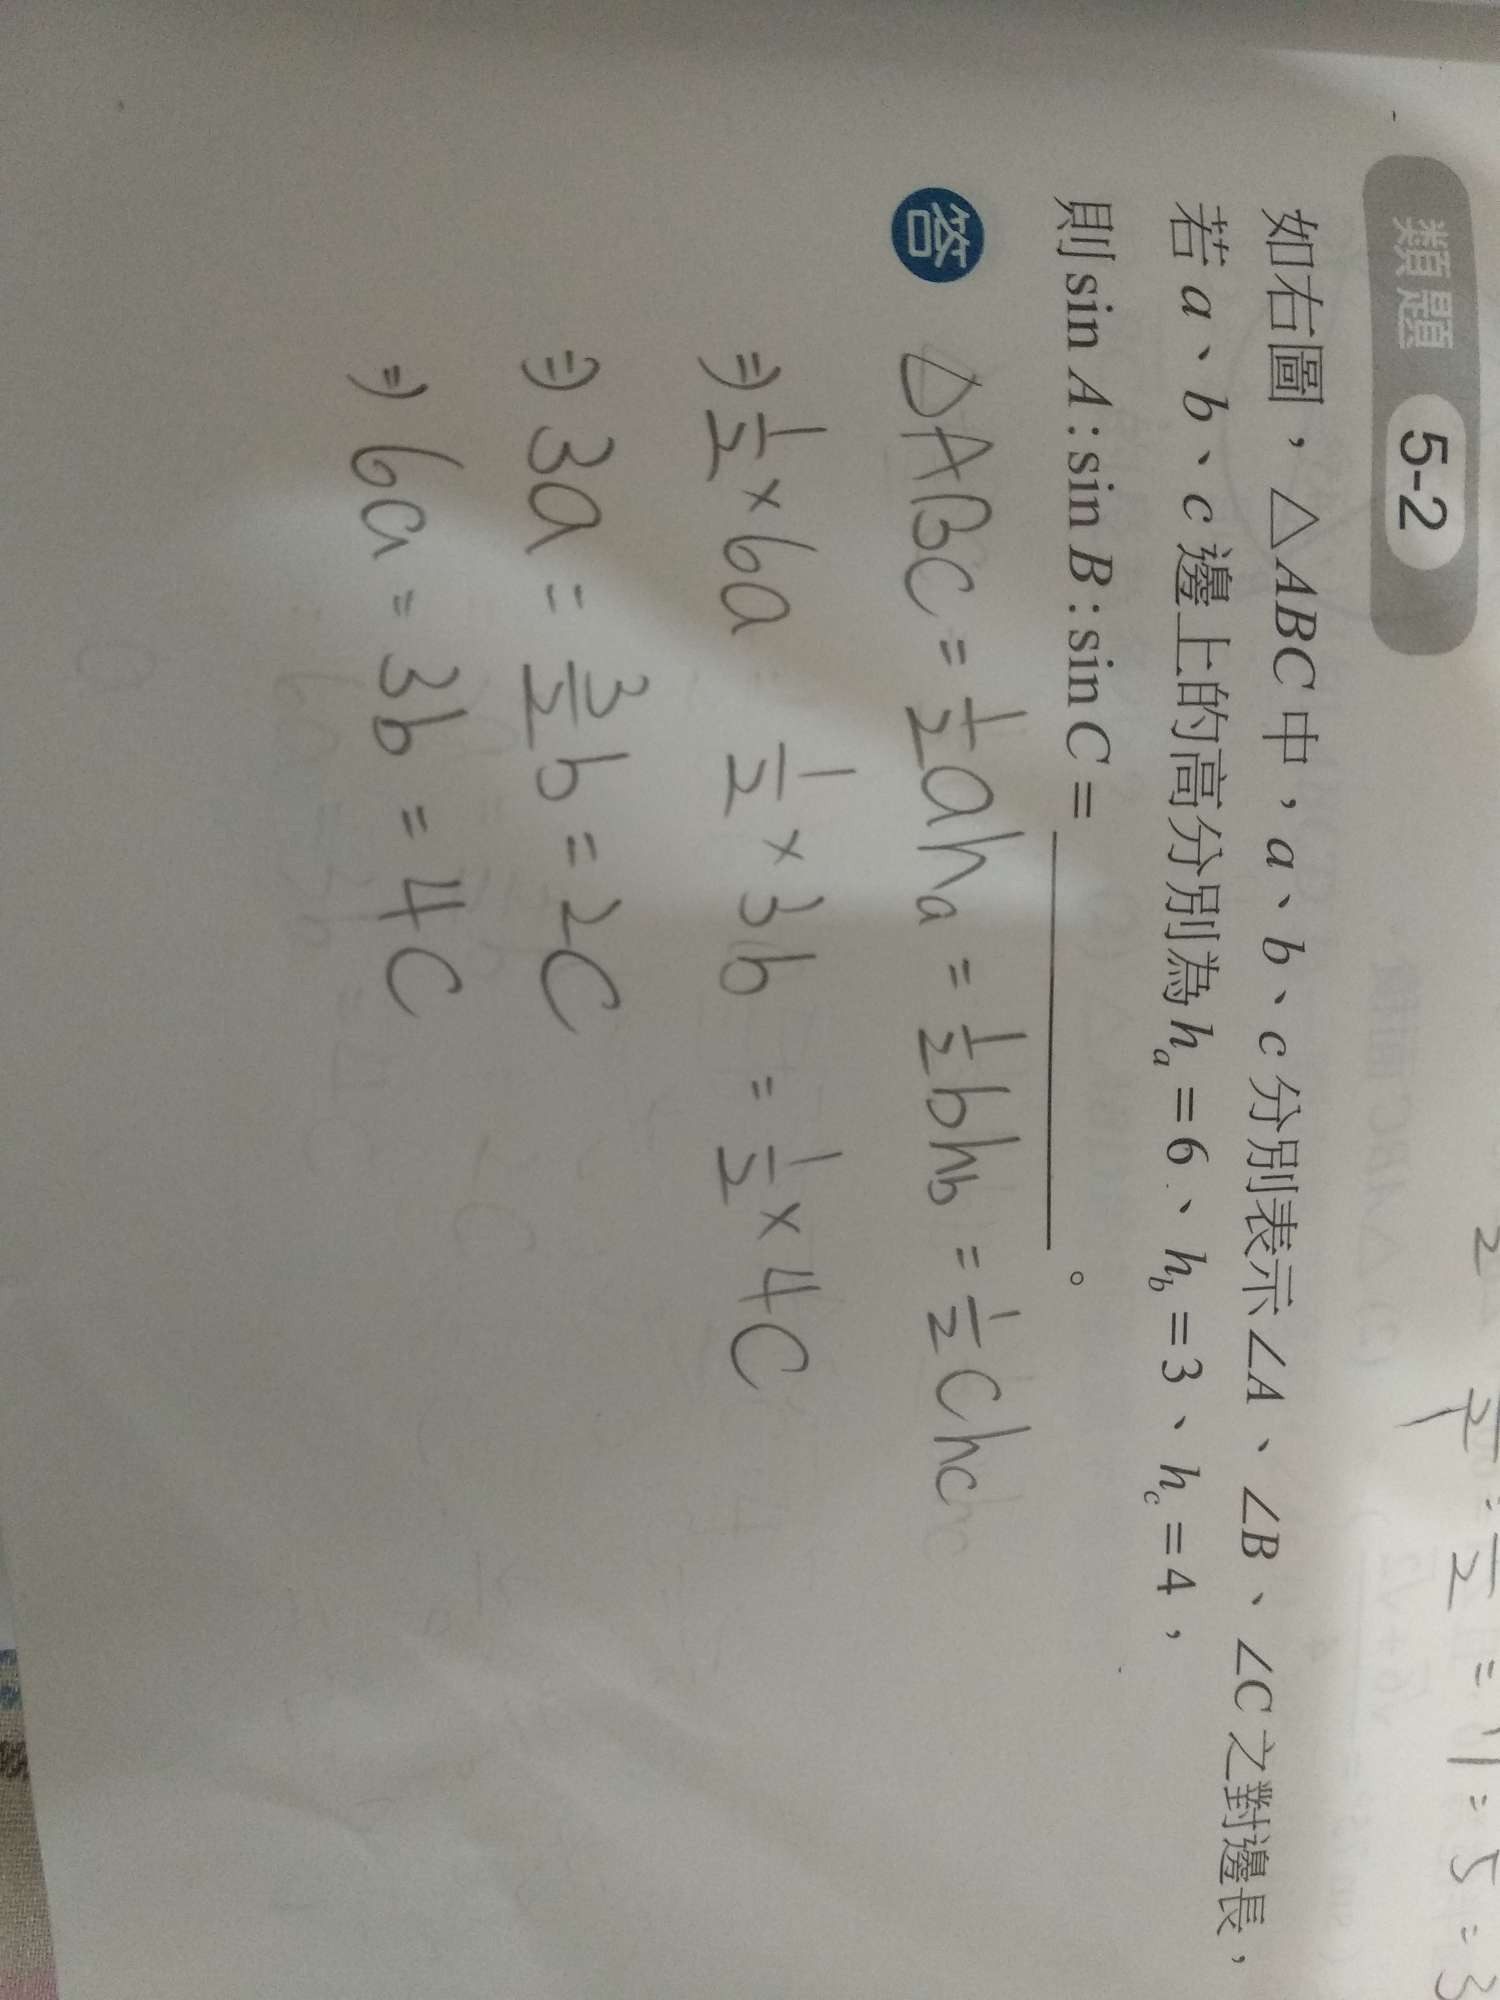 類題 5-2
如右圖，△ABC中，a、b、c分別表示∠A、∠B、∠C之對邊長，
若a、b、c邊上的高分別為hₐ=6、h_b=3、h_c=4，
則sin A:sin B:sin C=＿＿＿＿＿＿。
答 △ABC = 1/2 ahₐ = 1/2 bh_b = 1/2 ch_c
⇒ 1/2 × 6a = 1/2 × 3b = 1/2 × 4C
⇒ 3a = 3/2 b = 2C
⇒ 6a = 3b = 4C